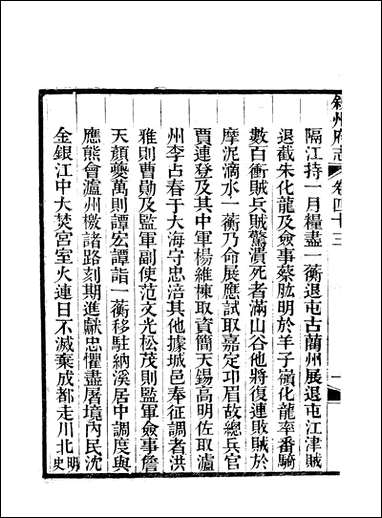 敘州府志
卷四十三
隔江持一月糧盡一蘅退屯古藺州展退屯江津賊
退截朱化龍及僉事蔡肱明於羊子嶺化龍率番騎
數百衝賊兵賊驚潰死者滿山谷他將復連敗賊於
摩泥滴水一蘅乃命展應試取嘉定邛眉故總兵官
賈連登及其中軍楊維棟取資簡天錫高明佐取瀘
州李占春于大海守忠涪其他據城邑奉征調者洪
雅則曹勛及監軍副使范文光松茂則監軍僉事詹
天顏夔萬則譚宏譚詣一蘅移駐納溪居中調度與
應熊會瀘州檄諸路刻期進獻忠懼盡屠境內民沈
金銀江中大焚宮室火連日不滅棄成都走川北明史